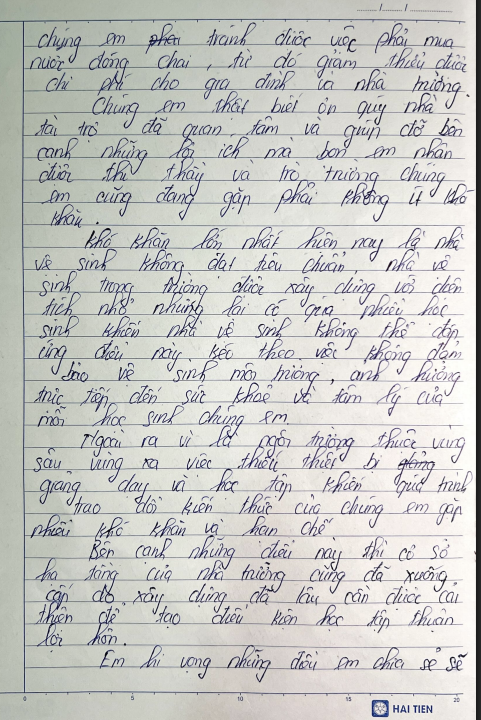 chúng em tránh được việc phải mua
nước đóng chai, từ đó giảm thiểu được
chi phí cho gia đình và nhà trường.
Chúng em thật biết ơn quý nhà
tài trợ đã quan tâm và giúp đỡ bên
cạnh những lợi ích mà bọn em nhận
được thì thầy và trò trường chúng
em cũng đang gặp phải không ít khó
khăn.
Khó khăn lớn nhất hiện nay là nhà
vệ sinh không đạt tiêu chuẩn nhà vệ
sinh trong trường được xây dựng với diện
tích nhỏ nhưng lại có quá nhiều học
sinh khiến nhà vệ sinh không thể đáp
ứng điều này kéo theo việc không đảm
bảo vệ sinh môi trường, ảnh hưởng
trực tiếp đến sức khoẻ và tâm lý của
mỗi học sinh chúng em
Ngoài ra vì là ngôi trường thuộc vùng
sâu vùng xa việc thiếu thiết bị
giảng dạy và học tập khiến quá trình
trao đổi kiến thức của chúng em gặp
nhiều khó khăn và hạn chế
Bên cạnh những điều này thì cơ sở
hạ tầng của nhà trường cũng đã xuống
cấp do xây dựng đã lâu cần được cải
thiện để tạo điều kiện học tập thuận
lợi hơn.
Em hi vọng những điều em chia sẻ sẽ
0 5 10 15 20
HAI TIEN